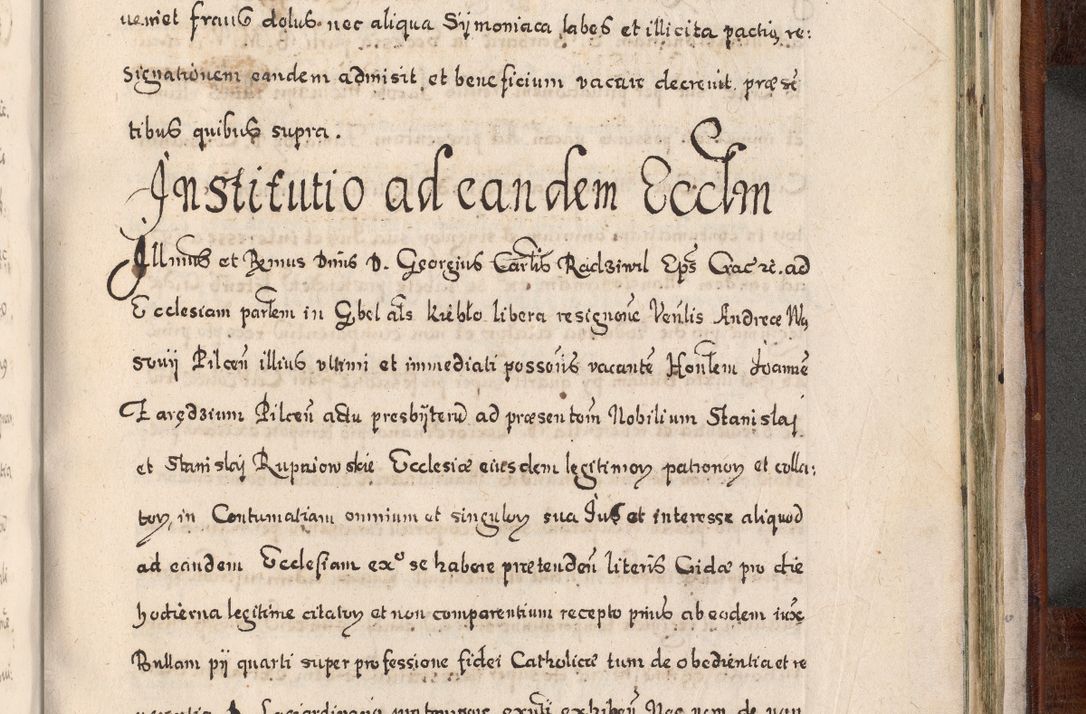 ueniet fraus dolus nec aliqua Sÿmoniaca labes et illicita pactio, re:
signationem eandem admisit et beneficium vacare decreuit. præsē
tibus quibus supra.
Institutio ad eandem Ecclm
Illmus et Rmus Dnūs D. Georgius Carlis Radziwil Eps Crac rē. ad
Ecclesiam parlem in Gbel als kiebło libera resignone Venlis Andreæ Wą
sowij Pilcen illius vltimi et immediati possoris vacante Honlem Joanne
Zarędzium Pilcen actu presbÿterū ad præsentom Nobilium Stanislaj
et Stanislaj Rupniowskie Ecclesiæ eiusdem legitimoꝝ patronoꝝ et colla:
toꝝ, in Contumatiam omnium et singuloꝝ sua Jus et interesse aliquod
ad eandem Ecclesiam exº se habere prætenden literis Cidæ pro die
hodierna legitime citatoꝝ et non comparentium recepto prius ab eodem iuxe
Bullam pij quarti super professione fidei Catholicæ tum de obedientia et re